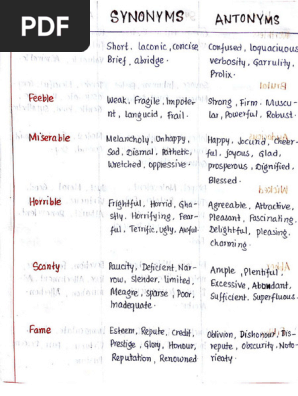 PDF
SYNONYMS
ANTONYMS
Short, laconic, concise
Brief, abridge.
Confused, loquacious
verbosity, Garrulity,
Prolix.
Feeble
Weak, Fragile, Impoten-
nt, languid, Frail.
Strong, Firm, Muscu-
lar, Powerful, Robust.
Miserable
Melancholy, Unhappy,
Sad, Dismal, Pathetic,
Wretched, oppressive.
Happy, Jocund, Cheer-
ful, joyous, Glad,
prosperous, Dignified,
Blessed.
Horrible
Frightful, Horrid, Gha-
stly, Horrifying, Fear-
ful, Terrific, Ugly, Awful
Agreeable, Attractive,
Pleasant, Fascinating,
Delightful, pleasing,
charming.
Scanty
Paucity, Deficient, Nar-
row, slender, limited,
Meagre, sparse, Poor,
Inadequate.
Ample, Plentiful,
Excessive, Abundant,
Sufficient, Superfluous.
Fame
Esteem, Repute, Credit,
Prestige, Glory, Honour,
Reputation, Renowned
Oblivion, Dishonour, Dis-
repute, obscurity, Noto-
rieaty.